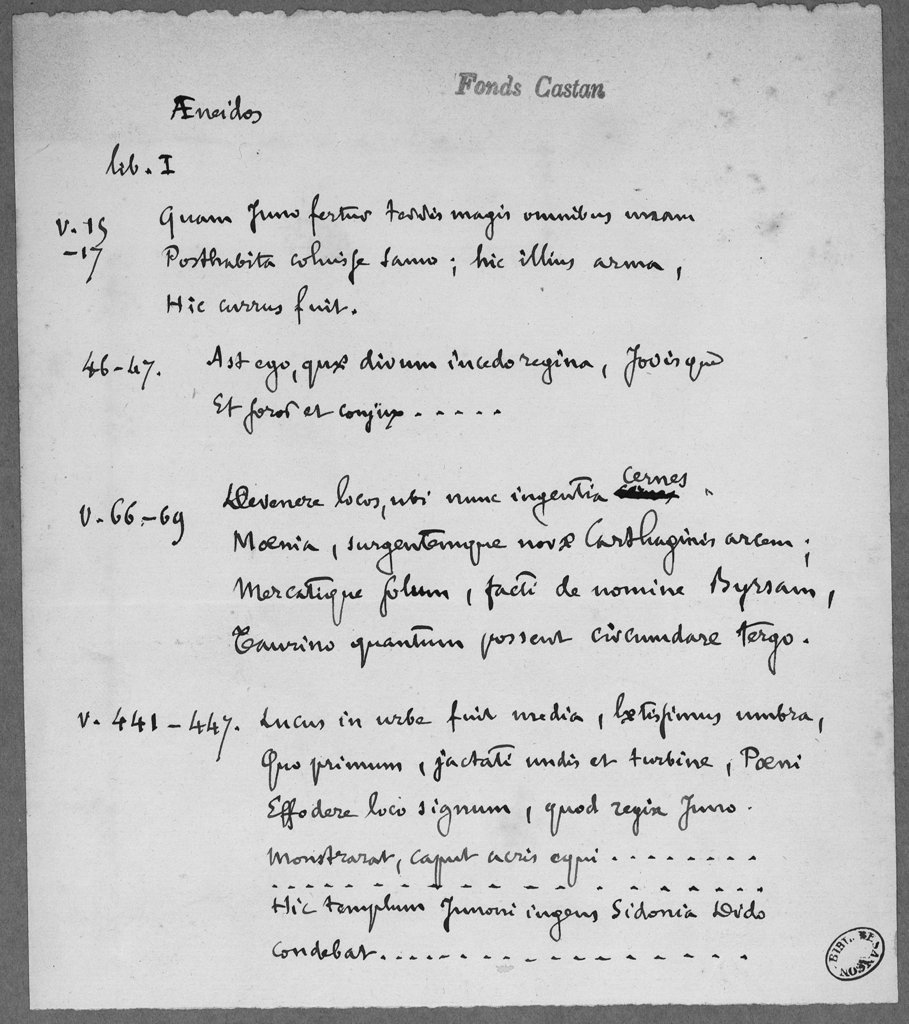 Fonds Castan
Æneidos
lib. I
v. 15
-17
Quam Juno fertur terris magis omnibus unam
Posthabita coluisse Samo ; hic illius arma ,
Hic currus fuit.
46-47.
Ast ego, quæ divum incedo regina, Jovisque
Et soror et conjux . . . . .
v. 66-69
Devenere locos, ubi nunc ingentia cernes
Mœnia, surgentemque novæ Carthaginis arcem ;
Mercatique solum, facti de nomine Byrsam,
Taurino quantum possent circumdare tergo.
v. 441-447.
Lucus in urbe fuit media, lætissimus umbra,
Quo primum, jactati undis et turbine, Pœni
Effodere loco signum, quod regia Juno
Monstrarat, caput acris equi . . . . . . . .
. . . . . . . . . . . . . . . . . .
Hic templum Junoni ingens Sidonia Dido
Condebat. . . . . . . . . . . . . . . . . .
BIBL. BESANÇON